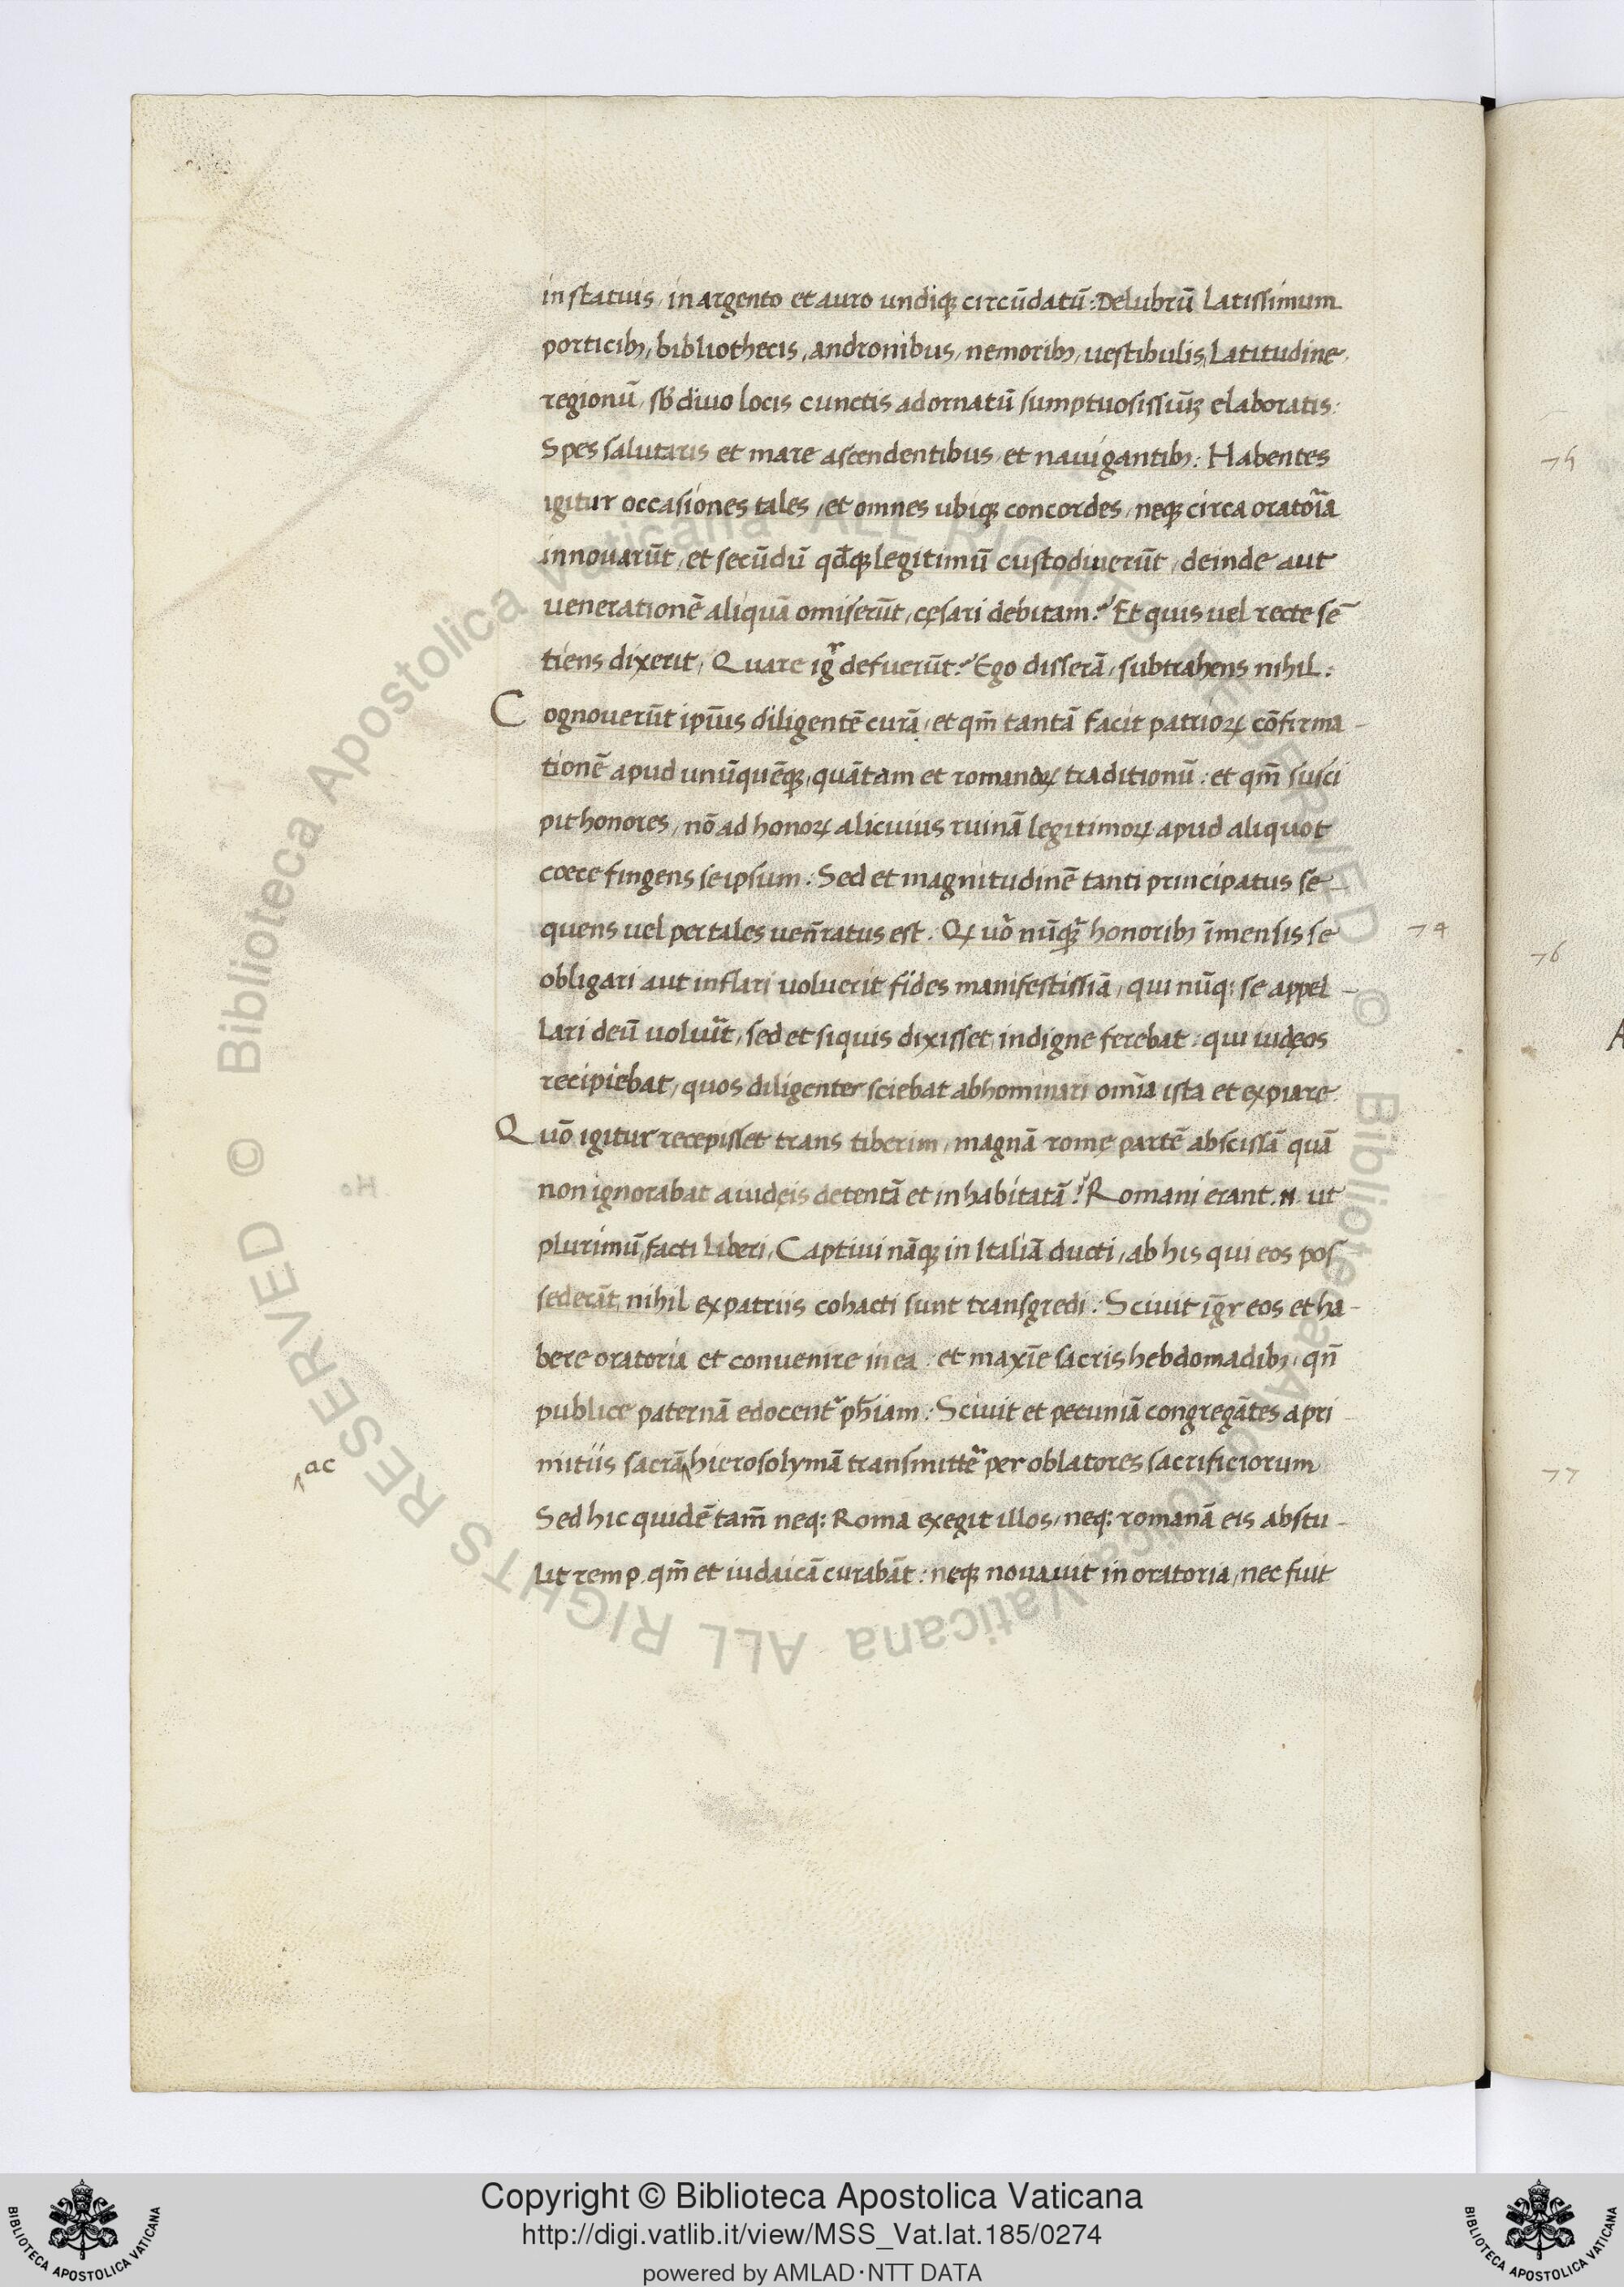 in statuis, in argento et auro undiqꝫ circūdatū: Delubrū latissimum
porticibꝫ, bibliothecis, andronibus, nemoribꝫ, uestibulis, latitudine
regionū, sb diuo locis cunctis adornatū sumptuosissiūꝫ elaboratis:
Spes salutaris et mare ascendentibus, et nauigantibꝫ: Habentes
igitur occasiones tales, et omnes ubiqꝫ concordes, neqꝫ circa oratoīa
innouarūt, et secūdū qd̄qꝫ legitimū custodiuerūt, deinde aut
uenerationē aliquā omiserūt, cęsari debitam? Et quis uel recte sē
tiens dixerit, Quare igr̄ defuerūt? Ego disserā, subtrahens nihil:
Cognouerūt ipīus diligentē curā, et qm̄ tantā facit patrioꝝ cōfirma-
tionē apud unūquēqꝫ, quātam et romanoꝝ traditionū: et qm̄ susci
pit honores, nō ad honoꝝ alicuius ruinā legitimoꝝ apud aliquot
cœce fingens seipsum: Sed et magnitudinē tanti principatus se-
quens uel per tales ueñratus est. Qꝝ uō nūqꝫ honoribꝫ īmensis se 74
obligari aut inflari uoluerit fides manifestissīā, qui nūqꝫ se appel-
lari deū uoluīt, sed et siquis dixisset, indigne ferebat: qui iudęos
recipiebat, quos diligenter sciebat abhominari omīa ista et expiare
Quō igitur recepisset trans tiberim, magnā romę partē abscissā quā
non ignorabat a iudęis detentā et inhabitatā? Romani erant .n. ut
plurimū, facti liberi, Captiui nāqꝫ in Italiā ducti, ab his qui eos pos
sederāt, nihil ex patriis cohacti sunt transgredi: Sciuit igr̄ eos et ha-
bere oratoria et conuenire in ea: et maxīe sacris hebdomadibꝫ, qn̄
publice paternā edocent phīam: Sciuit et pecuniā congregātes a pri
mitiis sacrā hierosolymā transmittē per oblatores sacrificiorum
ac
Sed hic quidē tam̄ neqꝫ Roma exegit illos, neqꝫ romanā eis abstu-
lit remp. qm̄ et iudaicā curabāt: neqꝫ nouauit in oratoria, nec fuit
75
76
77
© Biblioteca Apostolica Vaticana ALL RIGHTS RESERVED
© Biblioteca Apostolica Vaticana ALL RIGHTS RESERVED
Copyright © Biblioteca Apostolica Vaticana
http://digi.vatlib.it/view/MSS_Vat.lat.185/0274
powered by AMLAD·NTT DATA
BIBLIOTECA APOSTOLICA VATICANA
BIBLIOTECA APOSTOLICA VATICANA